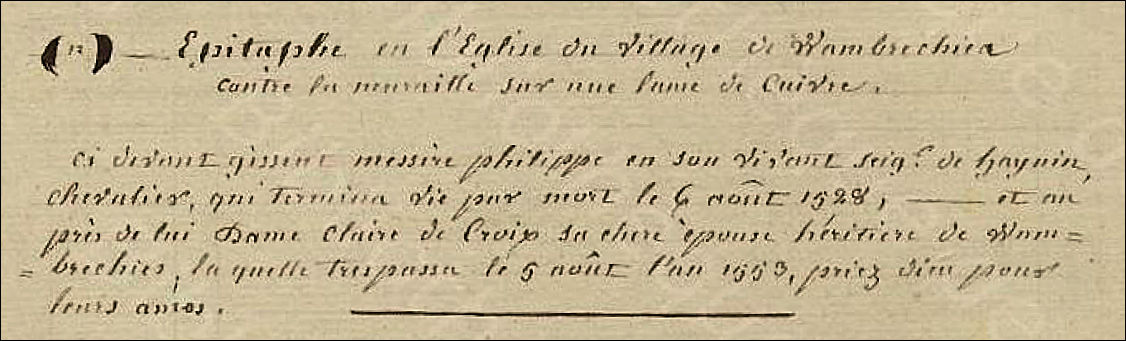 (12) — Epitaphe en l'Eglise du village de Wambrechies
contre la muraille sur une lame de Cuivre.
ci devant gissent messire philippe en son vivant seigr. de haynin,
chevalier, qui termina vie par mort le 6 août 1528, — et au
près de lui Dame Claire de Croix sa chere épouse héritiere de Wam=
=brechies, la quelle trespassa le 5 août l'an 1553, priez dieu pour
leurs ames.